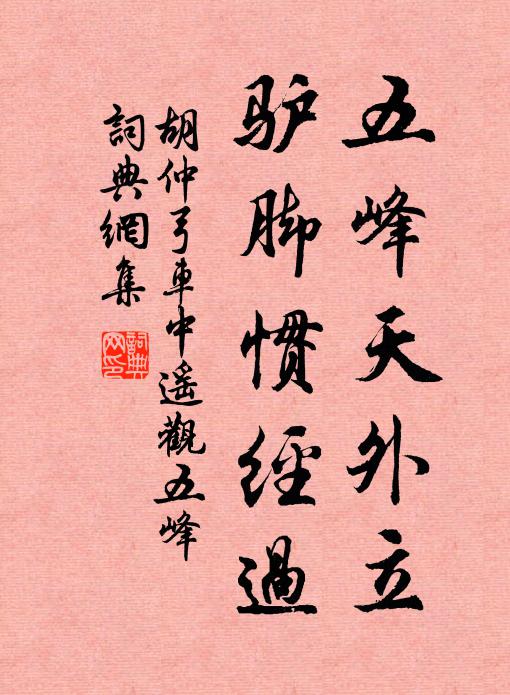 五峰天外立
驴脚惯經過
胡仲弓車中遥觀五峰
詞典網集
詞典网印